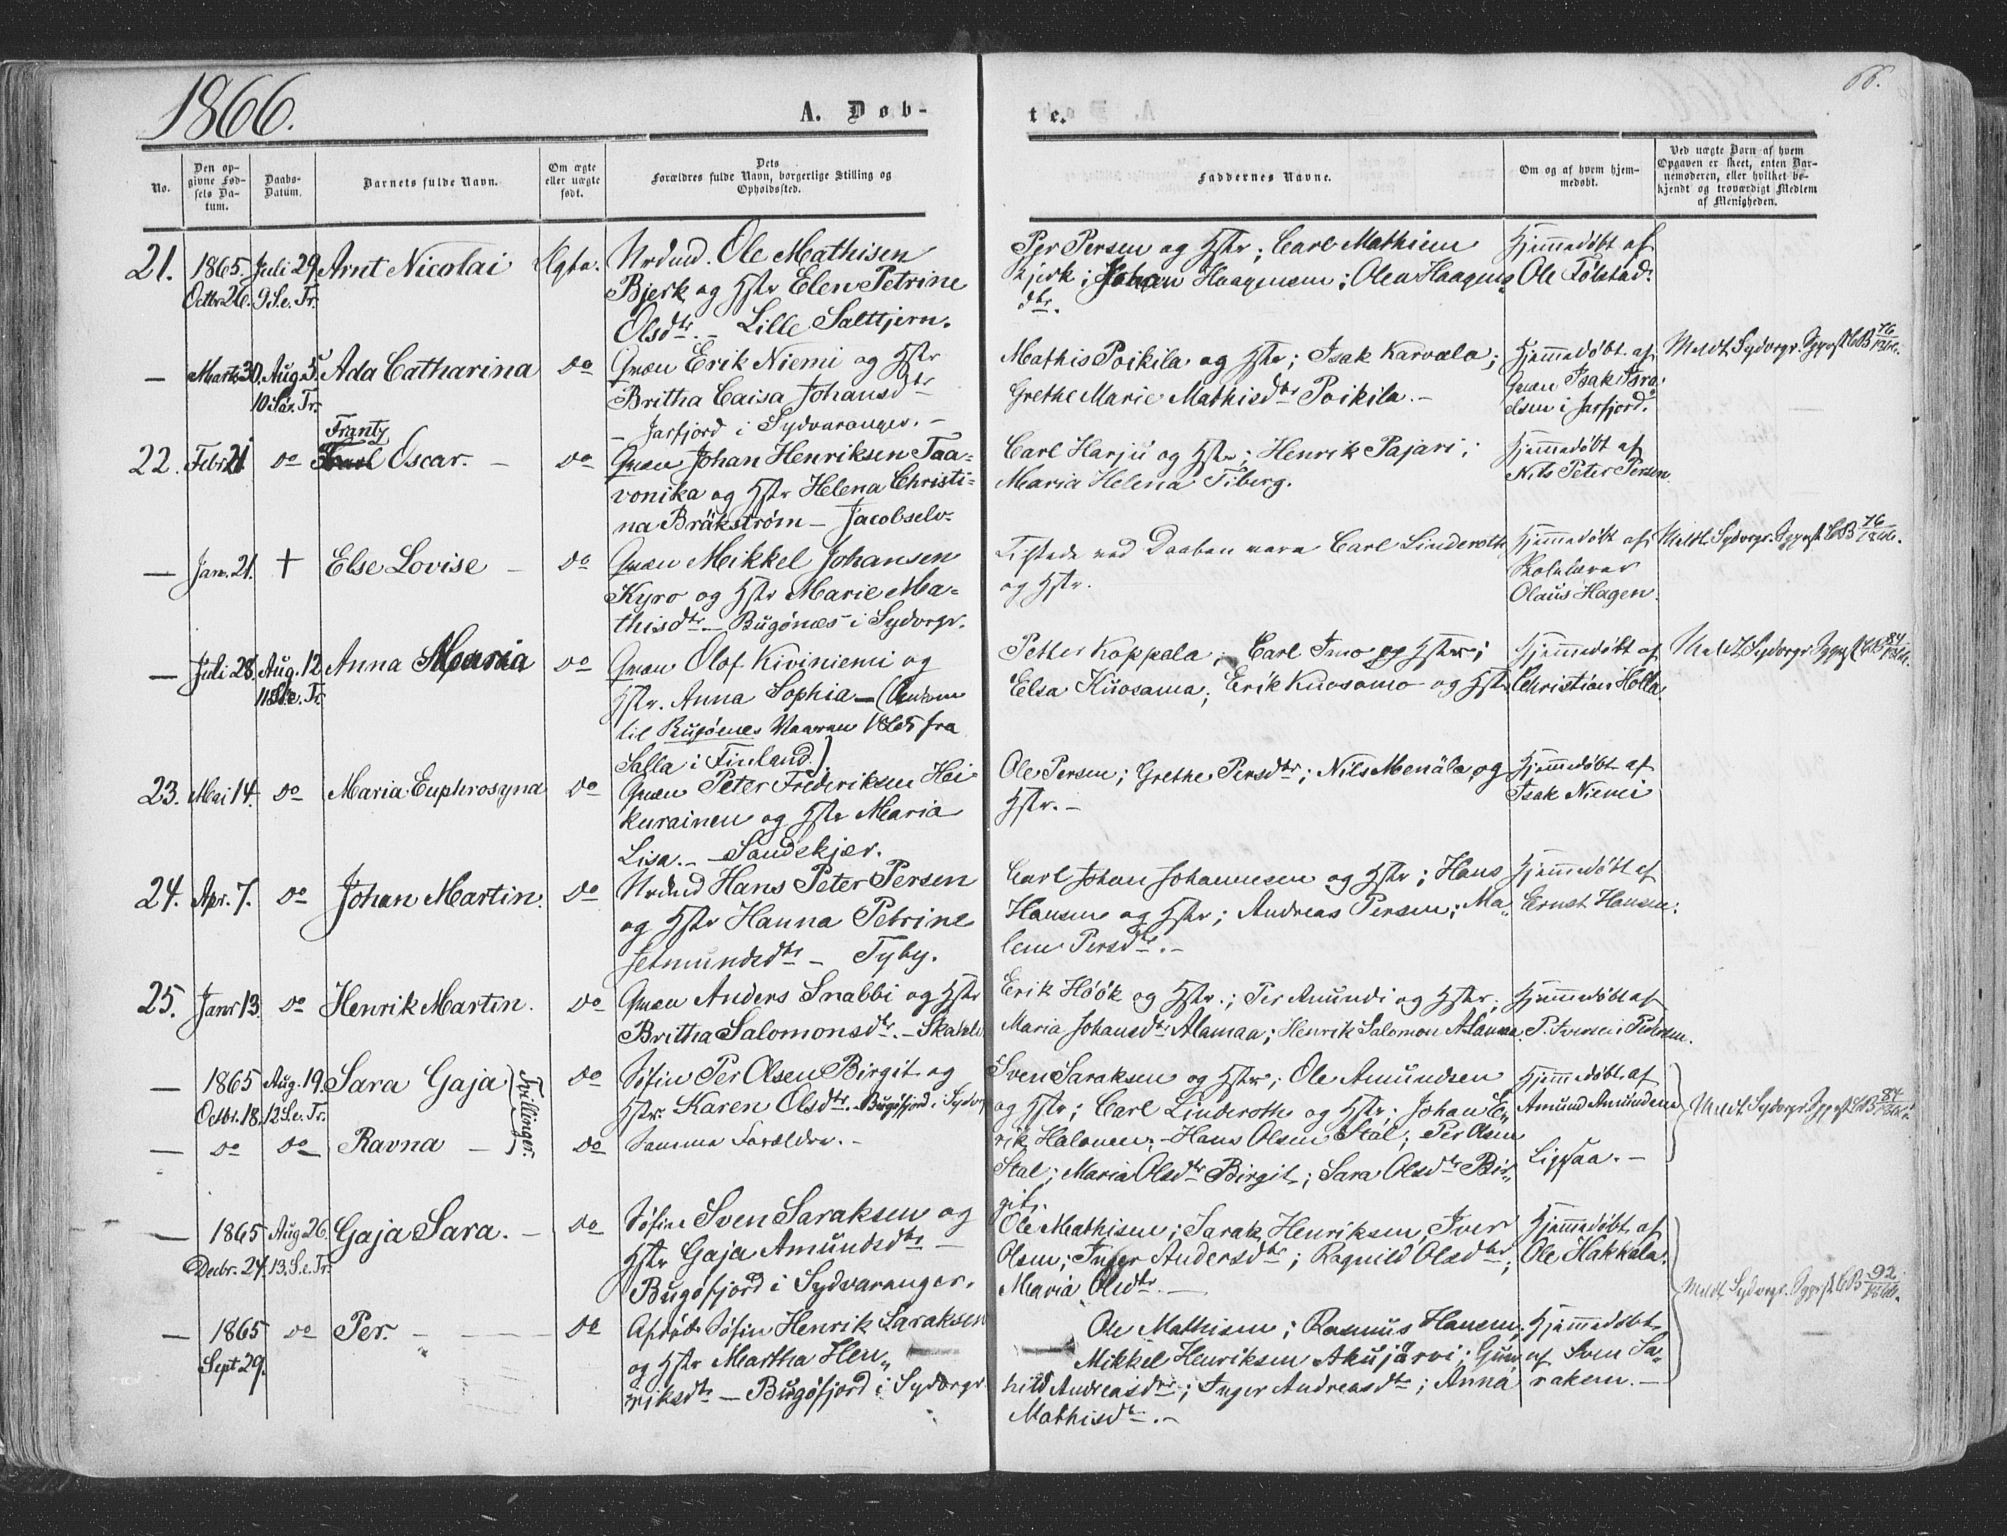 1866.
66.
A. Døb-
te.
No.
Den op-
givne Fød-
sels Da-
tum.
Daabs-
Datum.
Barnets fulde Navn.
Om ægte
eller uægte
født.
Dets
Forældres fulde Navn, borgerlige Stilling og
Opholdssted.
Faddernes Navne.
Om og af hvem hjem-
medøbt.
Ved uægte Barn af hvem
Opgaven er skeet, enten Bar-
nemoderen, eller hvilket be-
kjendt og troværdigt Medlem
af Menigheden.
21. 1865. Juli 29 Arnt Nicolai Ægte. Ole Mathisen
Octbr 26. 9 S. e. Tr. Bjerk og Hstr Elen Petrine
Olsdtr. - Lille Salttjern.
Per Persen og Hstr; Carl Mathisen
Bjerk; Johan Haagensen; Olea Haagens
dtr.
Hjemmedøbt af
Ole Tølstad.
— Marts 30. Aug. 5. Ada Catharina do Qvæn Erik Niemi og Hstr
10 S. e. Tr. Britha Caisa Johansdtr
- Jarfjord i Sydvaranger. -
Mathis Poikila og Hstr; Isak Karvala;
Grethe Marie Mathisdtr Poikila. -
Hjemmedøbt af
Qvæn Isak Isra-
elsen i Jarfjord.
Meldt Sydvrgr. CB 76/1866.
Frantz
22. Febr 21 do Carl Oscar. - do Qvæn Johan Henriksen Taa-
vonika og Hstr Helena Christi-
na Bräkström - Jacobselv-
Carl Harju og Hstr; Henrik Pajari;
Maria Helena Tiberg.
Hjemmedøbt af
Nils Peter Persen
— Jan. 21. † Else Lovise - do Qvæn Mikkel Johansen
Kyro og Hstr Marie Ma-
thisdtr - Bugønes i Sydvrgr.
Tilstede ved Daaben vare Carl Linderoth
og Hstr.
Hjemmedøbt af
Skolelærer
Olaus Hagen.
Meldt Sydvrgr. CB 76/1866.
— Juli 28. Aug. 12 Anna Maria do Qvæn Olof Kiviniemi og
11 S. e. Tr. Hstr. Anna Sophia - (Ankom
til Bugønes Vaaren 1865 fra
Salla i Finland).
Petter Koppala; Carl Imo og Hstr;
Elsa Kuosama; Erik Kuosamo og Hstr
Hjemmedøbt af
Christian Holla.
Meldt Sydvrgr. CB 84/1866.
23. Mai 14. do Maria Euphrosyna do Qvæn Peter Frederiksen Hei
kurainen og Hstr Maria
Lisa. - Sandekjær.
Ole Persen; Grethe Persdtr; Nils Menäla og
Hstr. -
Hjemmedøbt af
Isak Niemi
24. Apr. 7. do Johan Martin. do Hans Peter Persen
og Hstr Hanna Petrine
Jetmundsdtr - Tyby.
Carl Johan Johannesen og Hstr; Hans
Hansen og Hstr; Andreas Persen; Ma-
lene Persdtr. -
Hjemmedøbt af
Ernst Hansen.
25. Janr 13. do Henrik Martin. do Qvæn Anders Snabbi og Hstr
Britha Salomonsdtr. -
Erik Höök og Hstr.; Per Amundi og Hstr;
Maria Johansdtr Alamaa; Henrik Salomon Alamaa.
Hjemmedøbt af
P. Iversen
— 1865 Aug. 19. Sara Gaja do Søfin Per Olsen Birgit og
Octbr. 18. 12 S. e. Tr. Hstr. Karen Olsdtr. Bugøfjord i Sydvr
Tvillinger.
— do do Ravna - do Samme Forældre. -
Sven Saraksen og Hstr; Ole Amundsen
og Hstr; Carl Linderoth og Hstr; Johan E-
rik Halonen; - Hans Olsen Stal; Per Olsen
Stal; Maria Olsdtr Birgit; Sara Olsdtr Bir-
git.
Hjemmedøbt af
Amund Amundsen
Lipsaa. -
Meldt Sydvrgr. CB 84/1866.
— 1865 Aug 26. Gaja Sara. - do Søfin Sven Saraksen og
Decbr. 24. 13. S. e. Tr. Hstr Gaja Amundsdtr -
Bugøfjord i Sydvaranger.
Ole Mathisen; Sarak Henriksen; Iver
Olsen; Inger Andersdtr; Ragnild Olsdtr;
Maria Olsdtr. -
Hjemmedøbt af
Ole Hakkala.
Meldt Sydvrgr. CB 92/1866.
— 1865 do Per. - do Afdøde Søfin Henrik Saraksen
Sept 29. og Hstr Martha Hen-
riksdtr - Bugøfjord i Sydvrgr.
Ole Mathisen; Rasmus Hansen;
Mikkel Henriksen Akujärvi; Gun-
hild Andreasdtr; Inger Andreasdtr; Anna
Mathisdtr. -
Hjemmedøbt
af Sven Sa-
raksen. -